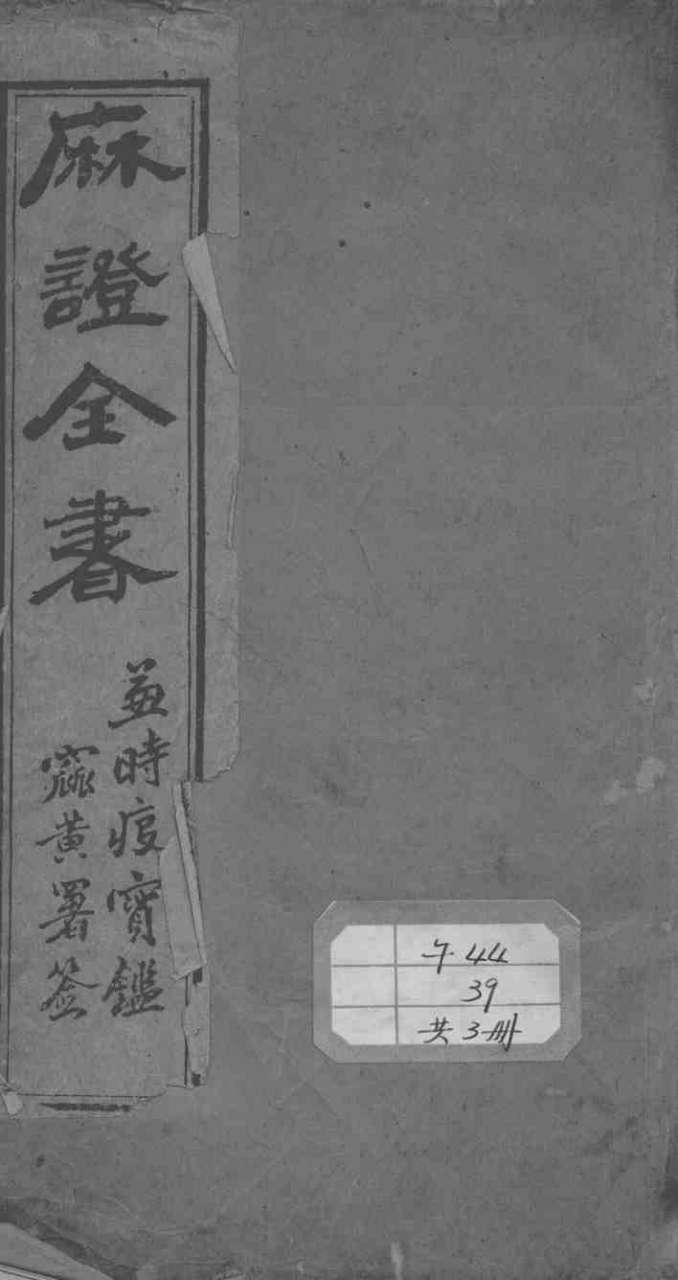 麻證全書
並時疫寶鑑
黄署签
午44
39
共3册